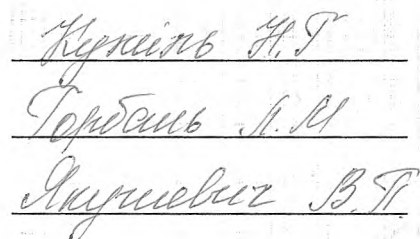 Кужель Н.Г
Горбань Л.М
Якушевич В.П.